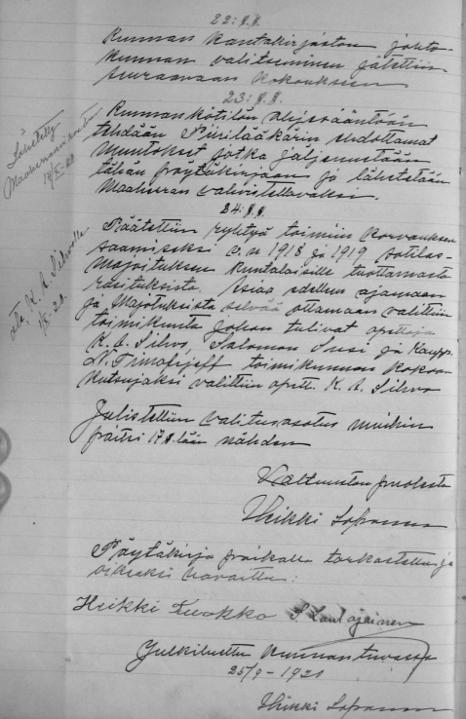 22: §.§.
Kunnan kantakirjaston johto-
kunnan valitseminen jätettiin
seuraavaan kokoukseen
23: §.§.
Kunnankötilön ohjesääntöön
tehdään Piirilääkärin ehdottamat
muutokset jotka jäljennetään
tähän pöytäkirjaan ja lähetetään
Maaherran vahvistettavaksi.
Lähetetty
Maaherranvirastoon
24: §.§.
Päätettiin ryhtyä toimiin korvauksen
saamiseksi v.n 1918 ja 1919 sotilas-
majoituksen kuntalaisille tuottamasta
rasituksista. Asiaa edelleen ajamaan
ja Majotuksista selvää ottamaan valittiin
toimikunta johon tulivat opettaja
K. A. Silvo, Salomon Susi ja Kaupp.
N. Timofejeff toimikunnan kokoon
kutsujaksi valittiin opett. K. A. Silvo
ote. K. A. Silvolle
Julistettiin valitusosotus muihin
paitsi 17 §.lään nähden
Valtuuston puolesta
Heikki
Pöytäkirja paikalla tarkastettu ja
oikeaksi havaittu:
Heikki Kuokko S. Lautajainen
Julkiluettu kunnantuvassa
25/9 – 1921
Heikki